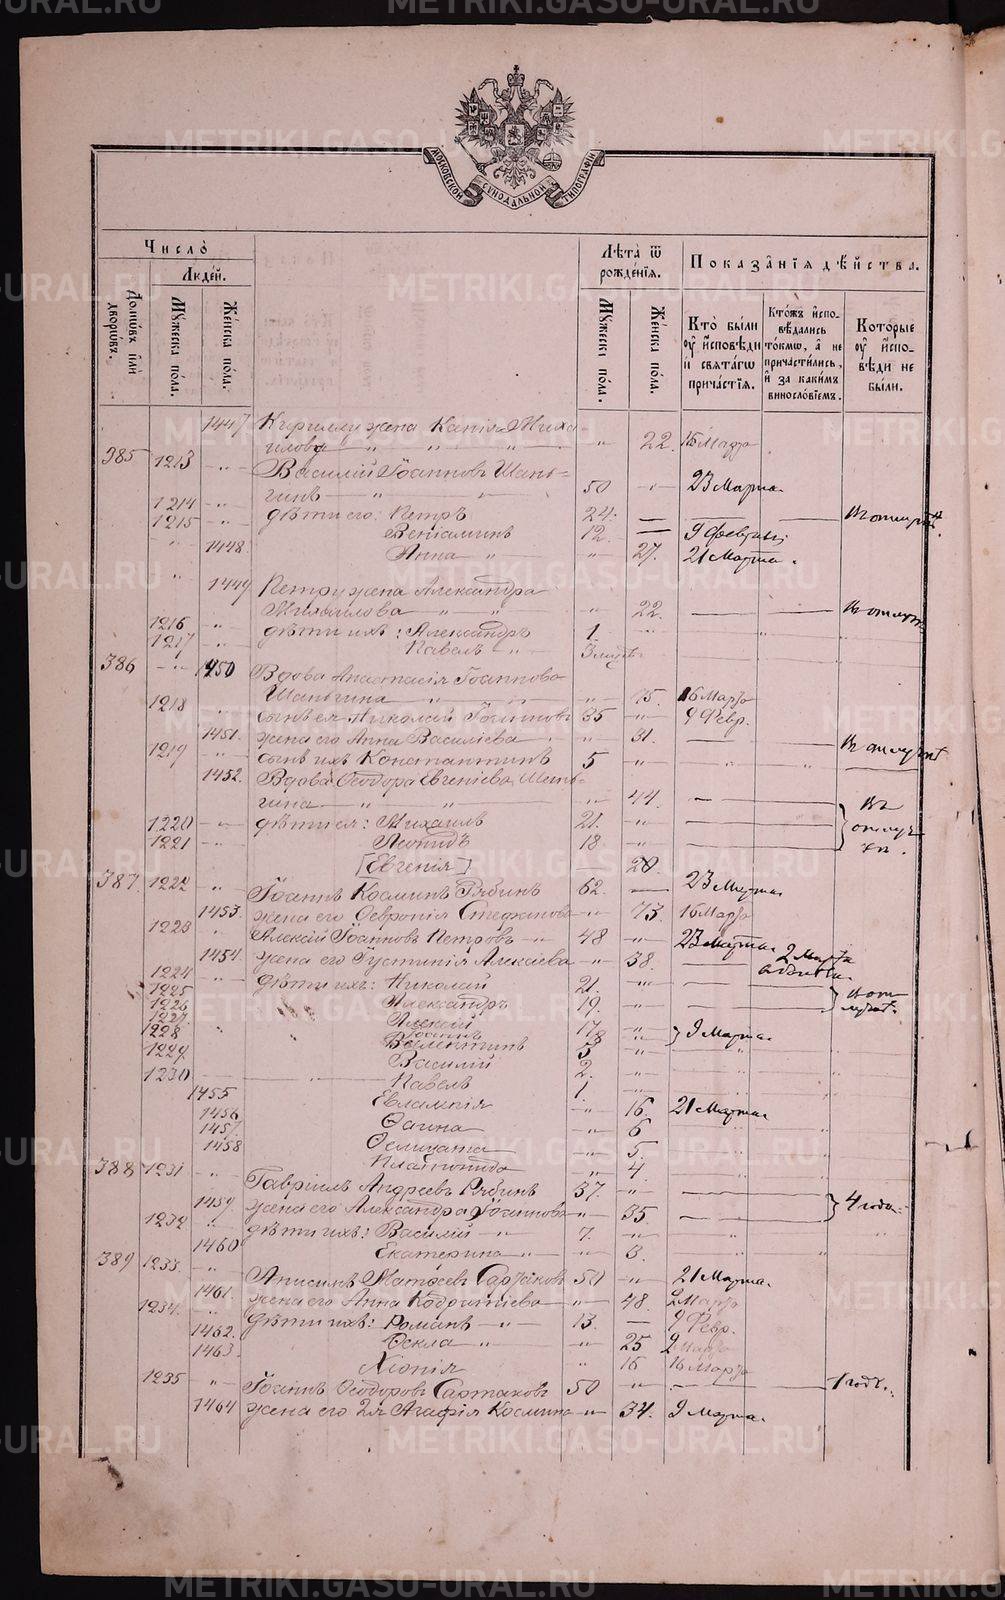 METRIKI.GASO-URAL.RU
МОСКОВСКОЙ СѴНОДАЛЬНОЙ ТИПОГРАФІИ
Число̀
Людей.
Домѡвъ и҆лѝ дворѡвъ.
Мꙋ́жеска по́ла.
Же́нска по́ла.
Лѣ́та ѿ рожде́нїя.
Мꙋ́жеска по́ла.
Же́нска по́ла.
Показа̑нїя дѣ́йства.
Кто̀ бы́ли ᲂу҆ и҆́сповѣди и҆ свята́гѡ прича́стїя.
Кто́жъ и҆спо-
вѣ́дались
то́кмѡ, а҆ не
причасти́лись,
и҆ за каки́мъ
винослѡ́вїемъ.
Которые ᲂу҆ и҆спо-
вѣди не
бы́ли.
1447 Кириллу жена Ксенія Миха-
илова " " " 22. 15 Марта
385 1213 " Василій Іоанновъ Шань-
гинъ " " 50 " 23 Марта.
1214 " дѣти его: Петръ 24. — — — Въ отлуч.
1215 " Веніаминъ 12. — 9 Февраля
" 1448. Анна " " 27. 21 Марта.
" 1449 Петру жена Александра
Михайлова " " " 22. — —
1216 " дѣти ихъ: Александръ 1.
1217 " Павелъ " 3 мѣсяц.
386 " 1450 Вдова Анастасія Іоаннова
Шаньгина " " " 75. 16 Марта
1218 " сынъ ея Николай Іоанновъ 35 " 9 Февр.
1451. жена его Анна Василіева " 31. — —
1219 " сынъ ихъ Константинъ 5 " " "
1452. Вдова Ѳеодора Евгеніева Шань-
гина " " " 44. — — Въ
1220 " дѣти ея: Михаилъ 21. " — — отлуч
1221 " Леонидъ 18. " — — кѣ.
[Евгенія] — 20.
387 1222 " Іоаннъ Косминъ Рябинъ 62. — 23 Марта
1453. жена его Февронія Стефанова " 73. 16 Марта
1223 " Алексій Іоанновъ Петровъ " 48 " 23 Марта.
1454. жена его Іустинія Алексіева " 38. — 2 Марта
1224 " дѣти ихъ: Николай 21. " — —
1225 Александръ 19. " — —
1226 Алексій 17 " } 9 Марта.
1227 Іоаннъ
1228 Валентинъ 5 "
1229 Василій 2. "
1230 Павелъ 1. "
1455 Евлампія " 16. 21 Марта
1456 Фаина " 6
1457 " 5.
1458 Платонида " 4.
388 1231 " Гавріилъ Андреевъ Рябинъ 37. " — —
1459. жена его Александра Іоаннова " 35. — — } 4 года.
1232 " дѣти ихъ: Василій " 7. "
1460 Екатерина " " 3.
389 1233. " Анисимъ Матѳеевъ Сартаковъ 50 " 21 Марта.
1461. жена его Анна Кодратіева " 48. 2 Марта
1234. " дѣти ихъ: Романъ " 13. — 9 Февр.
1462. Ѳекла " " 25 2 Марта
1463. Хіонія " 16 16 Марта
1235 " Іоаннъ Ѳеодоровъ Сартаковъ 50 " — — 1 годъ.
1464 жена его 2я Агафія Космина " 34. 9 Марта.